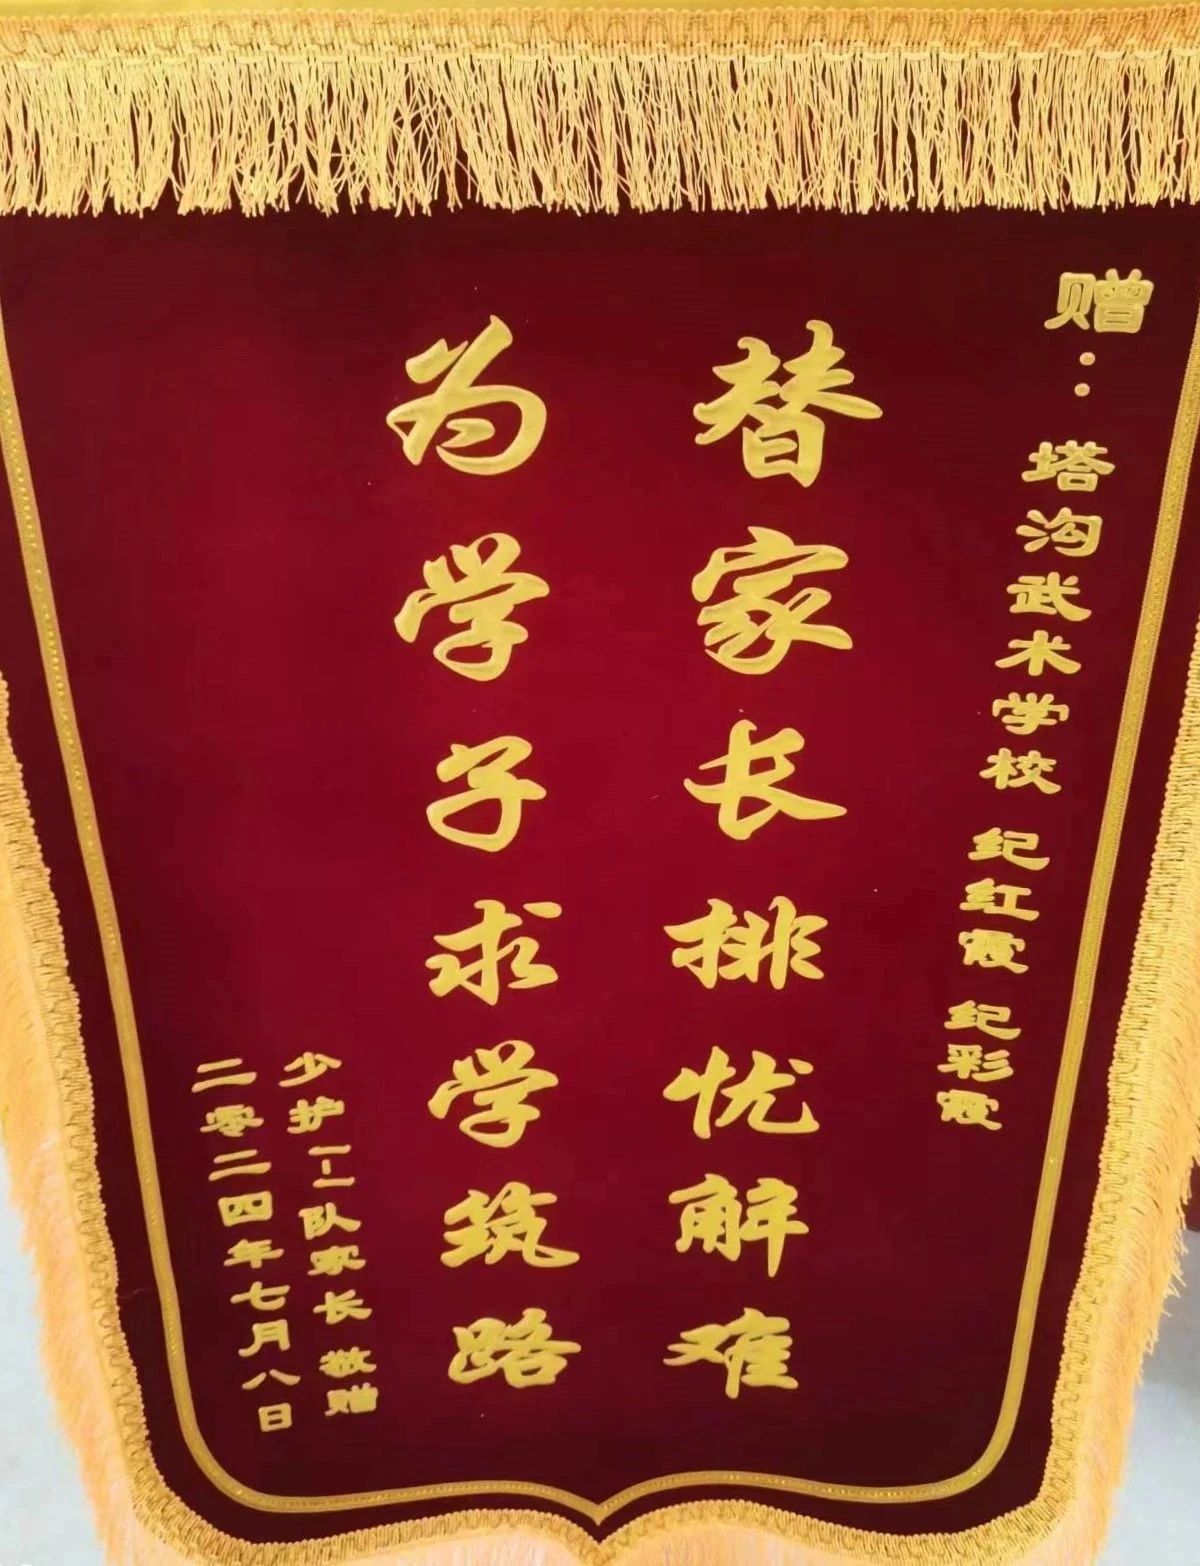 赠：塔沟武术学校 纪红霞 纪彩霞
替家长排忧解难
为学子求学筑路
少护一1一队家长 敬赠
二零二四年七月八日